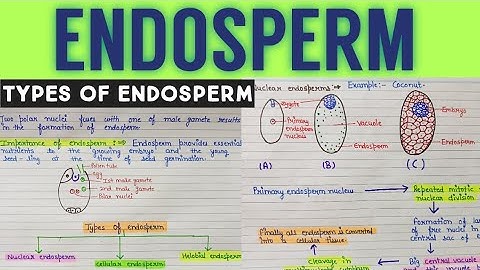 ENDOSPERM
TYPES OF ENDOSPERM
Two polar nuclei fuses with one of male gamete results
in the formation of endosperm.
Importance of endosperm :→ Endosperm provides essential
nutrients to the growing embryo and the young
seed-ling at the time of seed germination.
Pollen tube
egg
1st male gamete
2nd male gamete
Polar nuclei
Types of endosperm
Nuclear endosperm
cellular endosperm
Helobial endosperm
Nuclear endosperms :→ Example:- Coconut-
zygote
Primary
endosperm
nucleus
Vacuole
Endosperm
Embryo
Endosperm
(A)
(B)
(C)
Primary endosperm nucleus
Repeated mitotic
nuclear division
Formation of
of free nuclei in
central sac of
Big central vacuole
cleavage in
Finally all endosperm is converted
into a cellular tissue.